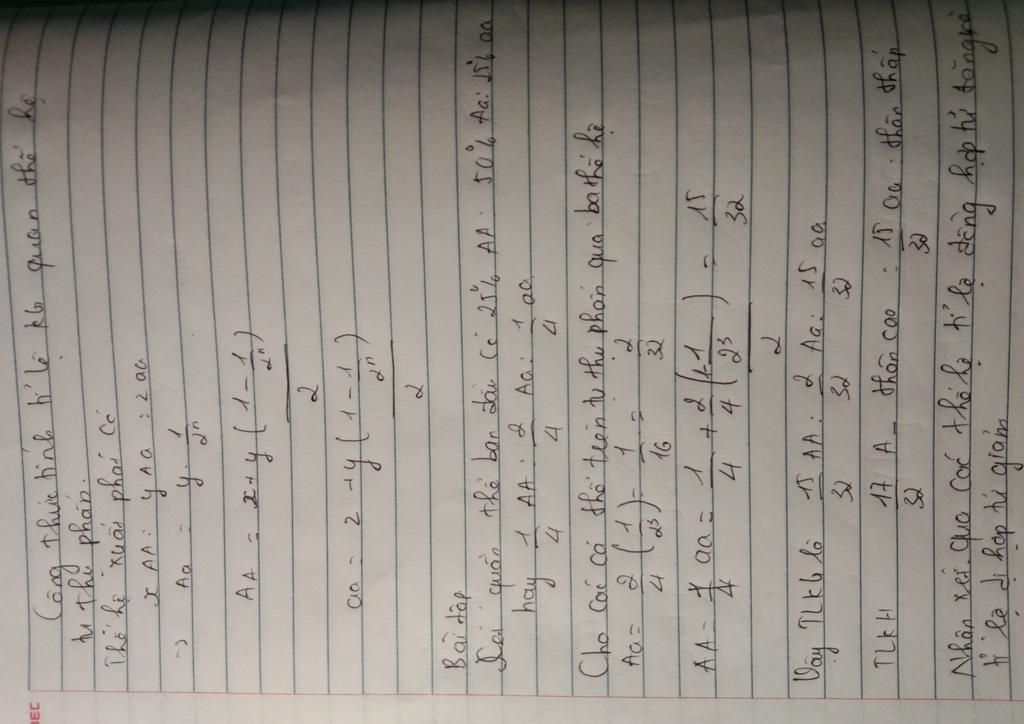 Công thức tính tỉ lệ kh quan thế hệ
tự thụ phấn.
Thế hệ xuất phát có
x AA : y Aa : z aa
=> Aa = y. 1/2ⁿ
AA = x + y ( 1 - 1/2ⁿ ) / 2
aa = z + y ( 1 - 1/2ⁿ ) / 2
Bài tập
quần thể ban đầu có 25% AA : 50% Aa : 25% aa
hay 1/4 AA : 2/4 Aa : 1/4 aa
Cho các cá thể trên tự thụ phấn qua ba thế hệ
Aa = 2/4 ( 1/2³ ) = 1/16 = 2/32
AA = aa = 1/4 + 2/4 ( 1-1/2³ ) / 2 = 15/32
Vậy TLKG là 15/32 AA : 2/32 Aa : 15/32 aa
TLKH 17/32 A_ thân cao : 15/32 aa : thân thấp
Nhận xét. qua các thế hệ tỉ lệ đồng hợp tử tăng và
tỉ lệ dị hợp tử giảm
BEC